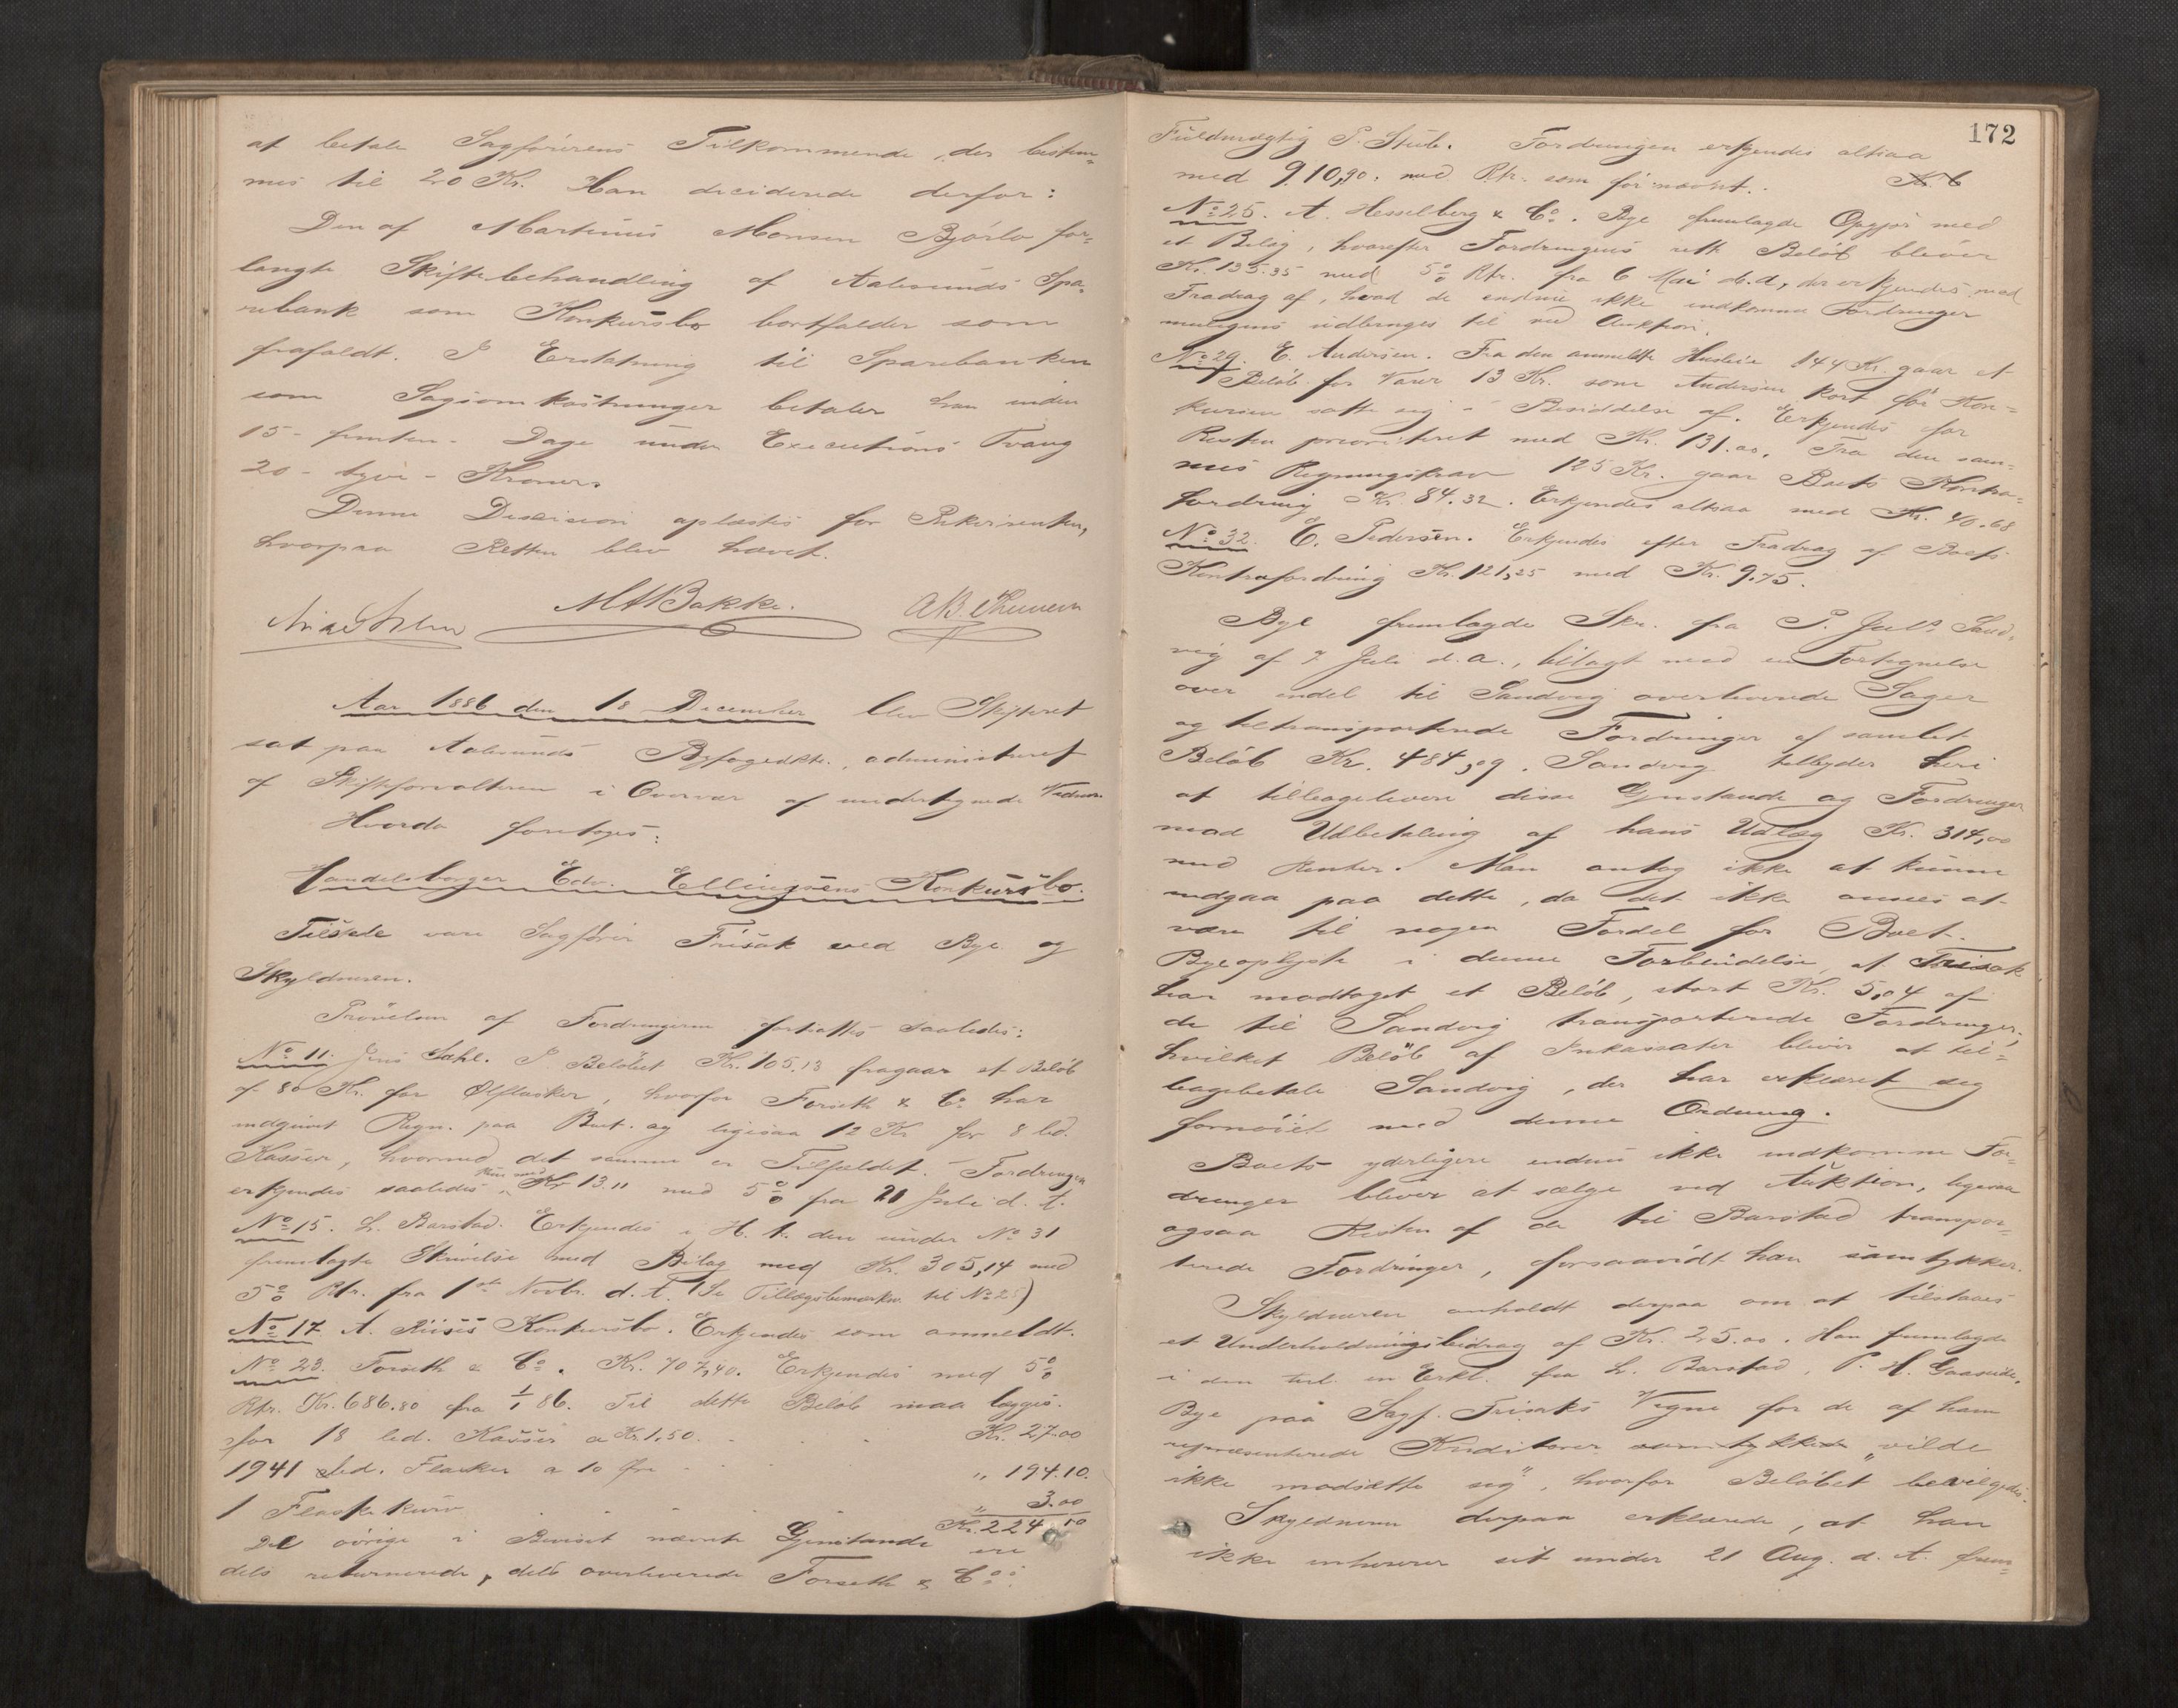 at betale Sagførerens Tilkommende, der bestem-
mes til 20 Kr. Han deciderede derfor:
Den af Martinus Monsen Bjørlo for-
langte Skiftebehandling af Aalesunds Spa-
rebank som Konkursbo bortfalder som
frafaldt. I Erstatning til Sparebanken
som Sagsomkostninger betaler han inden
15 - femten - Dage under Executions Tvang
20 - tyve - Kroner.
Denne Decision oplæstes for
hvorpaa Retten blev hævet.
M A Bakke.
Aar 1886 den 18 December blev Skifteret
sat paa Aalesunds Byfogedktr., administreret
af Skifteforvalteren i Overvær af undertegnede Vidner.
Hvorda foretoges:
Handelsborger Edv. Ellingsens Konkursbo.
Tilstede vare Sagfører Frisak ved Bye og
Skyldneren.
Prøvelsen af Fordringerne fortsattes saaledes:
No 11. Jens Dahl. I Beløbet Kr. 105.13 fragaar et Beløb
af 80 Kr. for Ølflasker, hvorfor Forseth & Co har
indgivet Regn. paa Boet. og ligesaa 12 Kr for 8 led.
Kasser, hvormed det samme er Tilfældet. Fordringen
erkjendes saaledes kun med Kr 13.11 med 5% fra 21 Juli d. A.
No 15. L. Barstad. Erkjendes i H. t. den under No 31
fremlagte Skrivelse med Bilag med Kr. 305,14 med
5% Rtr. fra 1ste Novbr. d. A. (Se Tillægsbemærkn. til No 25)
No 17. A. Riises Konkursbo. Erkjendes som anmeldt.
No 23. Forseth & Co. Kr. 707,40. Erkjendes med 5%
Rtr. Kr. 686.80 fra 1/1 86. Til dette Beløb maa lægges.
for 18 led. Kasser a Kr 1.50. Kr. 27.00
1941 led. Flasker a 10 Øre " 194.10.
1 Flaskekurv " 3.00
Kr. 224.10
De øvrige i Beviset nævnte Gjenstande ere
dels returnerede, dels overleverede Forseth & Co's
172
Fuldmægtig P. Stub. Fordringen erkjendes altsaa
med 910,90. med Rtr. som før nævnt.
No 25. A. Hesselberg & Co. Bye fremlagde Opgjør med
et Bilag, hvorefter Fordringens rette Beløb bliver
Kr. 135.35 med 5% Rtr. fra 6 Mai d. A, der erkjendes med
Fradrag af, hvad de endnu ikke indkomne Fordringer
muligens udbringes til ved Auktion.
No 29. E. Andersen. Fra den anmeldte Husleie 144 Kr. gaar et
Beløb for Varer 13 Kr. som Andersen kort før Kon-
kursen satte sig i Besiddelse af. Erkjendes for
Resten prioriteret med Kr. 131.00. Fra den sam-
mes Regningskrav 125 Kr. gaar Boets Kontra-
fordring Kr. 84.32. Erkjendes altsaa med Kr. 40.68
No 32. C. Pedersen. Erkjendes efter Fradrag af Boets
Kontrafordring Kr. 121,25 med Kr. 9.75.
Bye fremlagde Skr. fra P. Juls Sand-
vig af 7 Juli d. A., bilagt med en Fortegnelse
over endel til Sandvig overleverede Sager
og tiltransporterede Fordringer af samlet
Beløb Kr. 484,09. Sandvig tilbyder heri
at tilbagelevere disse Gjenstande og Fordringer
mod Udbetaling af hans Udlæg Kr. 314,00
med Renter. Man antog ikke at kunne
indgaa paa dette, da det ikke ansees at
være til nogen Fordel for Boet.
Bye oplyste i denne Forbindelse, at Frisak
har modtaget et Beløb, stort Kr. 5.04 af
de til Sandvig transporterede Fordringer,
hvilket Beløb af Inkassator bliver at til-
bagebetale Sandvig, der har erklæret sig
fornøiet med denne Ordning.
Boets yderligere endnu ikke indkomne For-
dringer bliver at sælge ved Auktion, ligesaa
ogsaa Resten af de til Barstad transpor-
terede Fordringer, forsaavidt han samtykker.
Skyldneren anholdt derpaa om at tilstaaes
et Underholdningsbidrag af Kr. 25.00. Han fremlagde
i den Anl. en Erkl. fra L. Barstad, P. H. Gaaseide.
Bye paa Sagf. Frisaks Vegne for de af ham
repræsenterede Kreditorer samtykkede "vilde
ikke modsætte sig", hvorfor Beløbet bevilgedes.
Skyldneren derpaa erklærede, at han
ikke inhærerer sit under 21 Aug. d. A. frem-